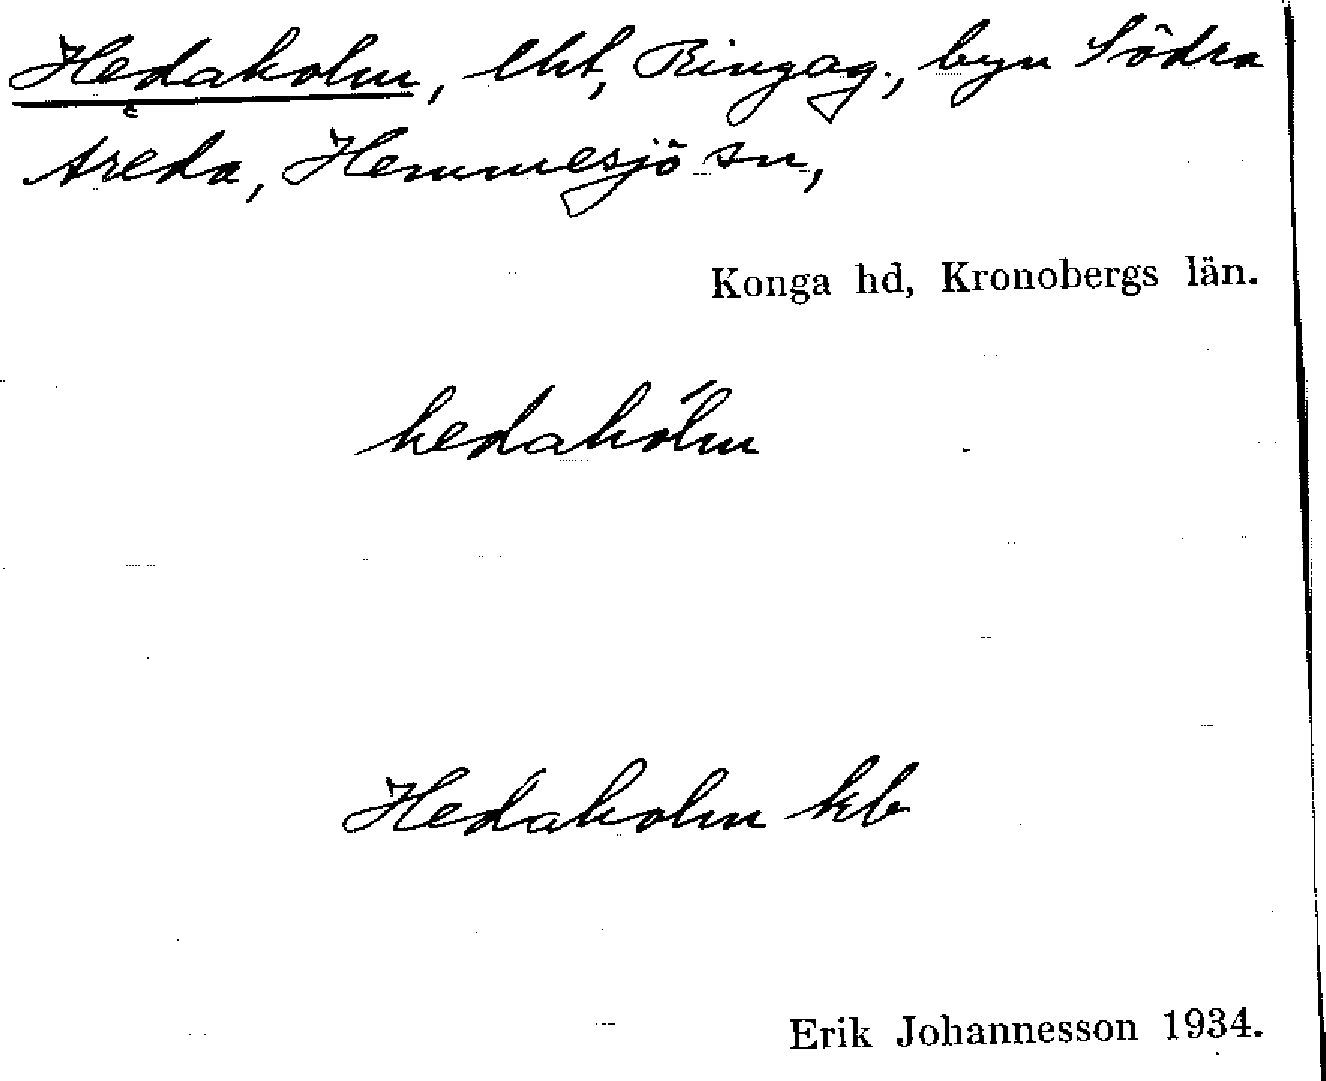 Hedaholm, lht, Ringag., byn Södra
Areda, Hemmesjö sn,
Konga hd, Kronobergs län.
hedahól̄m
Hedaholm kb
Erik Johannesson 1934.